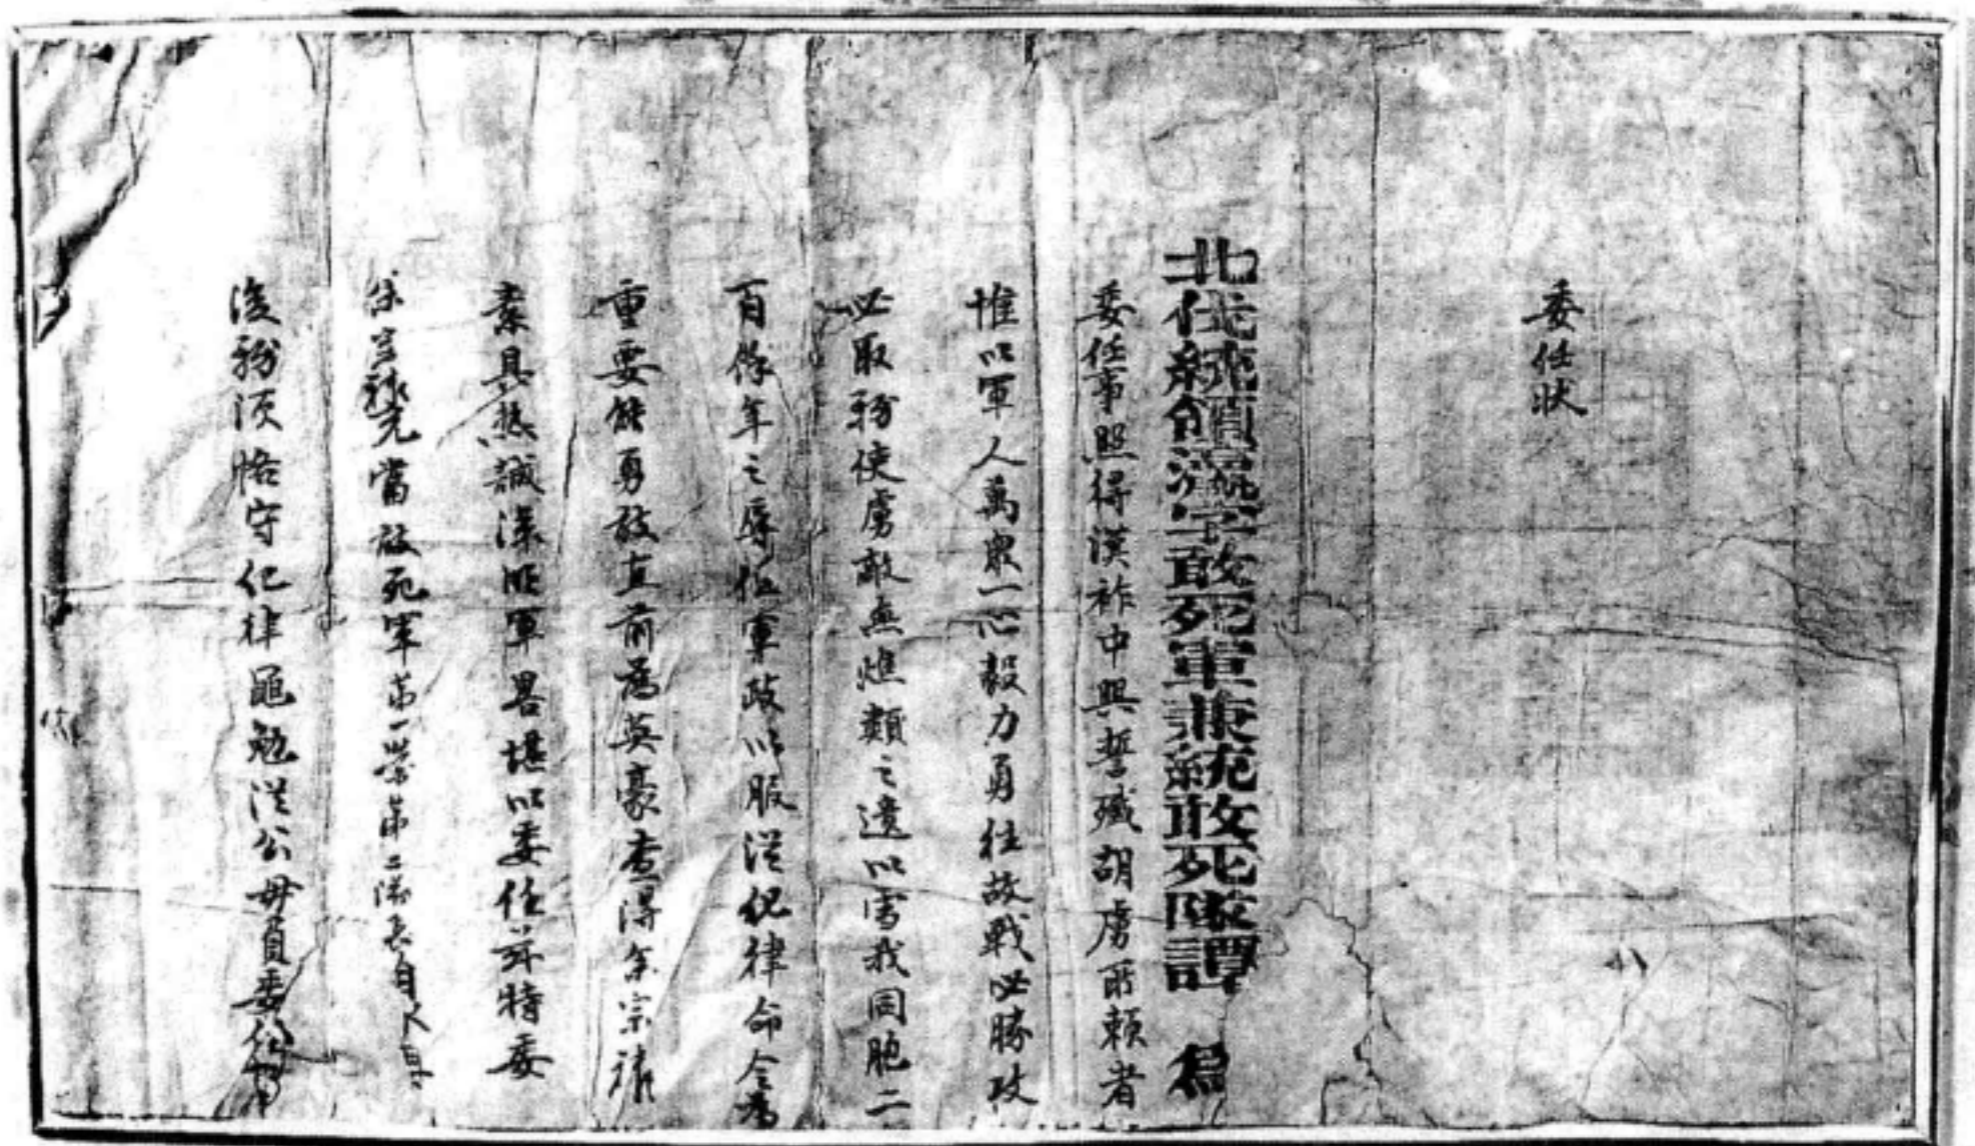 委任狀
北伐統領瀛字敢死軍兼統敢死隊譚 爲
委任事照得漢祚中興誓殲胡虜所賴者
惟以軍人萬眾一心毅力勇往故戰必勝攻
必取務使虜敵無燋類之遺以雪我同胞二
百餘年之辱但軍政以服從紀律命令為
重要能勇敢直前為英豪查得余宗禮
素具熱誠深明軍畧堪以委任茲特委
余宗禮充當敢死軍第一營第二隊長自
後務須恪守紀律黽勉從公毋負委任